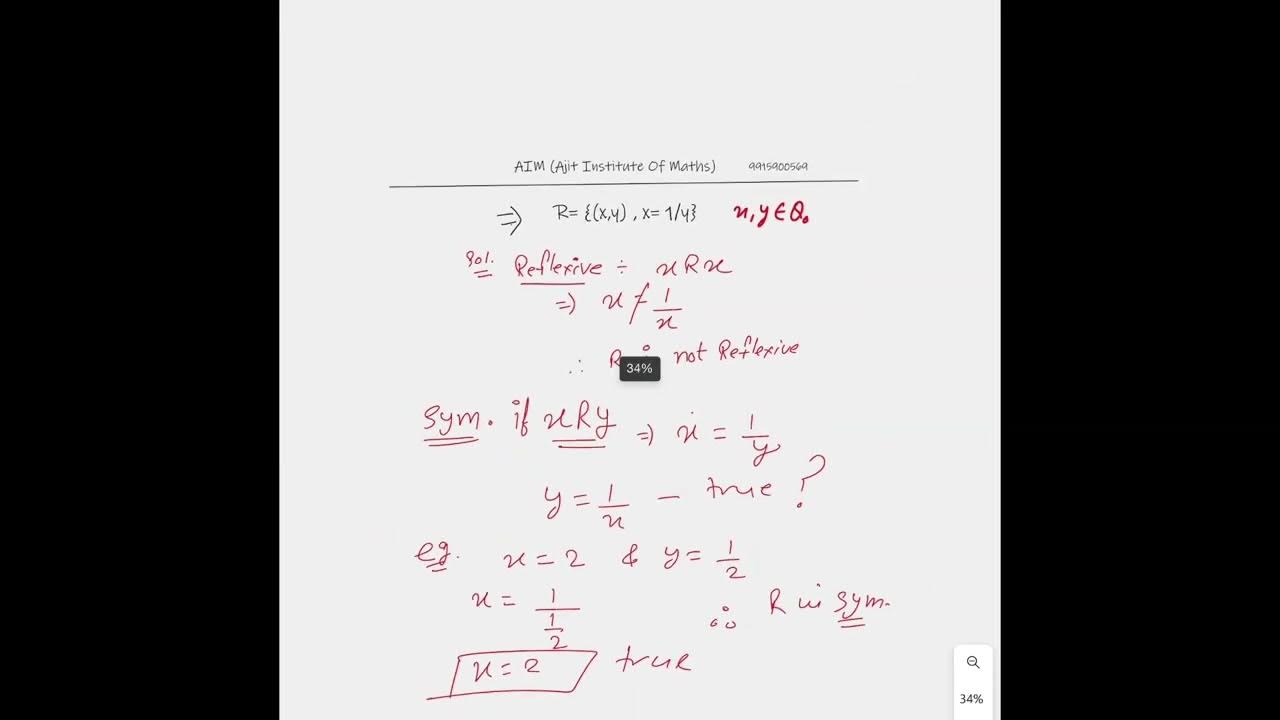 AIM (Ajit Institute Of Maths) 9915900569
⇒ R= {(x,y) , x= 1/y} x,y ∈ Q.
Sol. Reflexive ÷ xRx
⇒ x ≠ 1/x
∴ R is not Reflexive
34%
Sym. if xRy ⇒ x = 1/y
y = 1/x – true ?
eg. x = 2 & y = 1/2
x = 1/(1/2) ∴ R is sym.
x = 2 true
34%